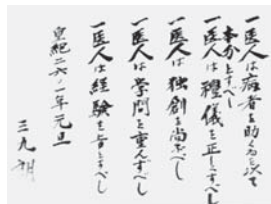 一医人は病者を助くるを以て
本分とすべし
一医人は禮儀を正しくすべし
一医人は独創を尚ぶべし
一医人は学問を重んずべし
一医人は経験を旨とすべし
皇紀二六〇一年元旦
三九朔